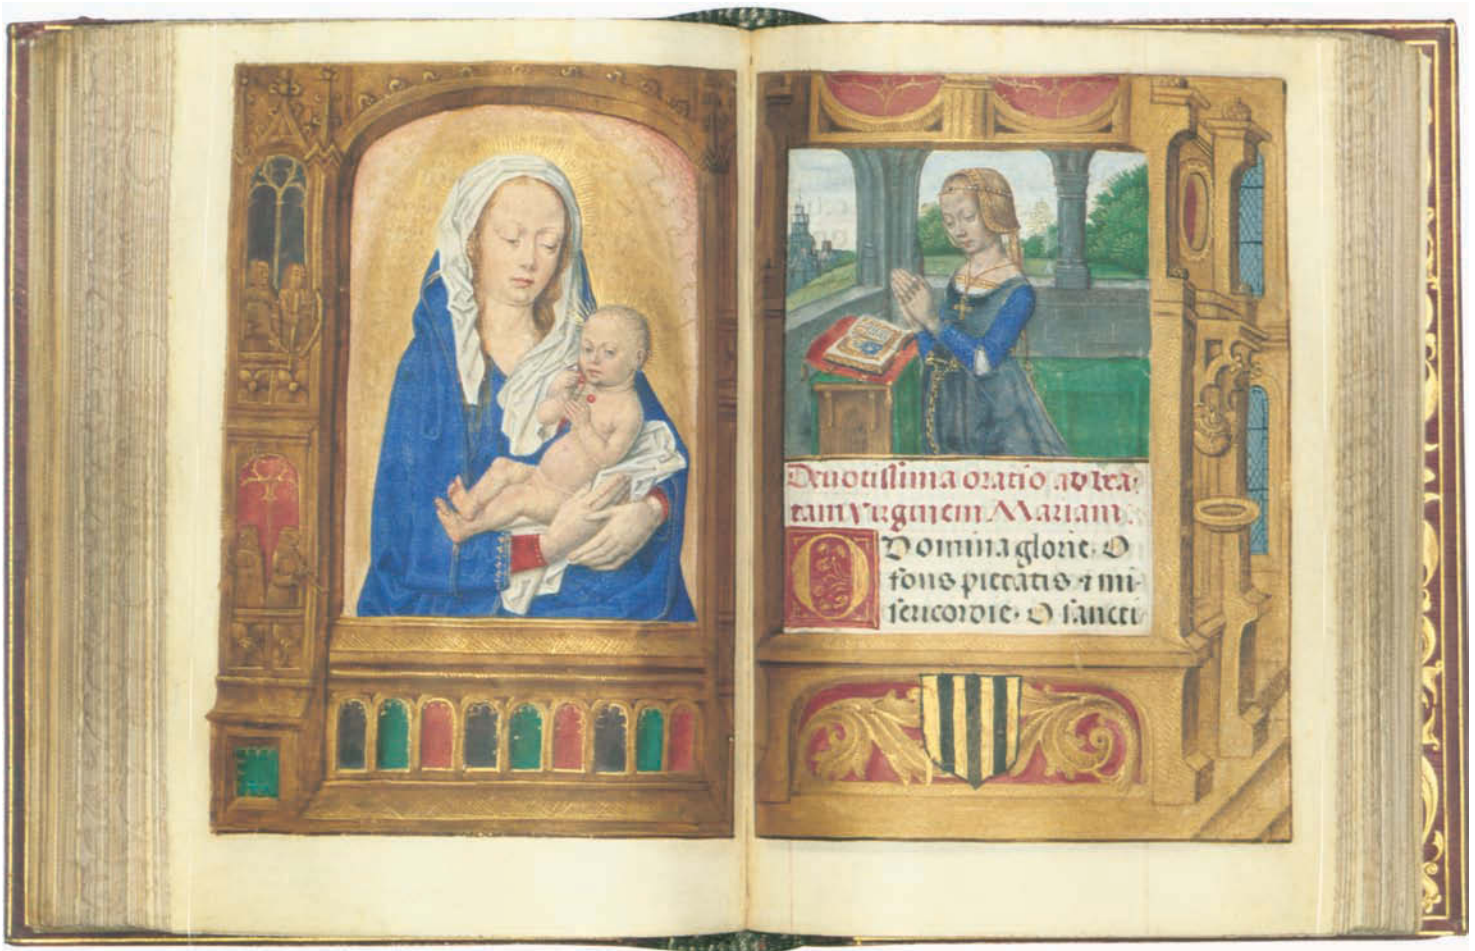 Devotissima oratio ad bea-
tam virginem Mariam.
O Domina glorie. O
fons pietatis ⁊ mi-
sericordie. O sancti